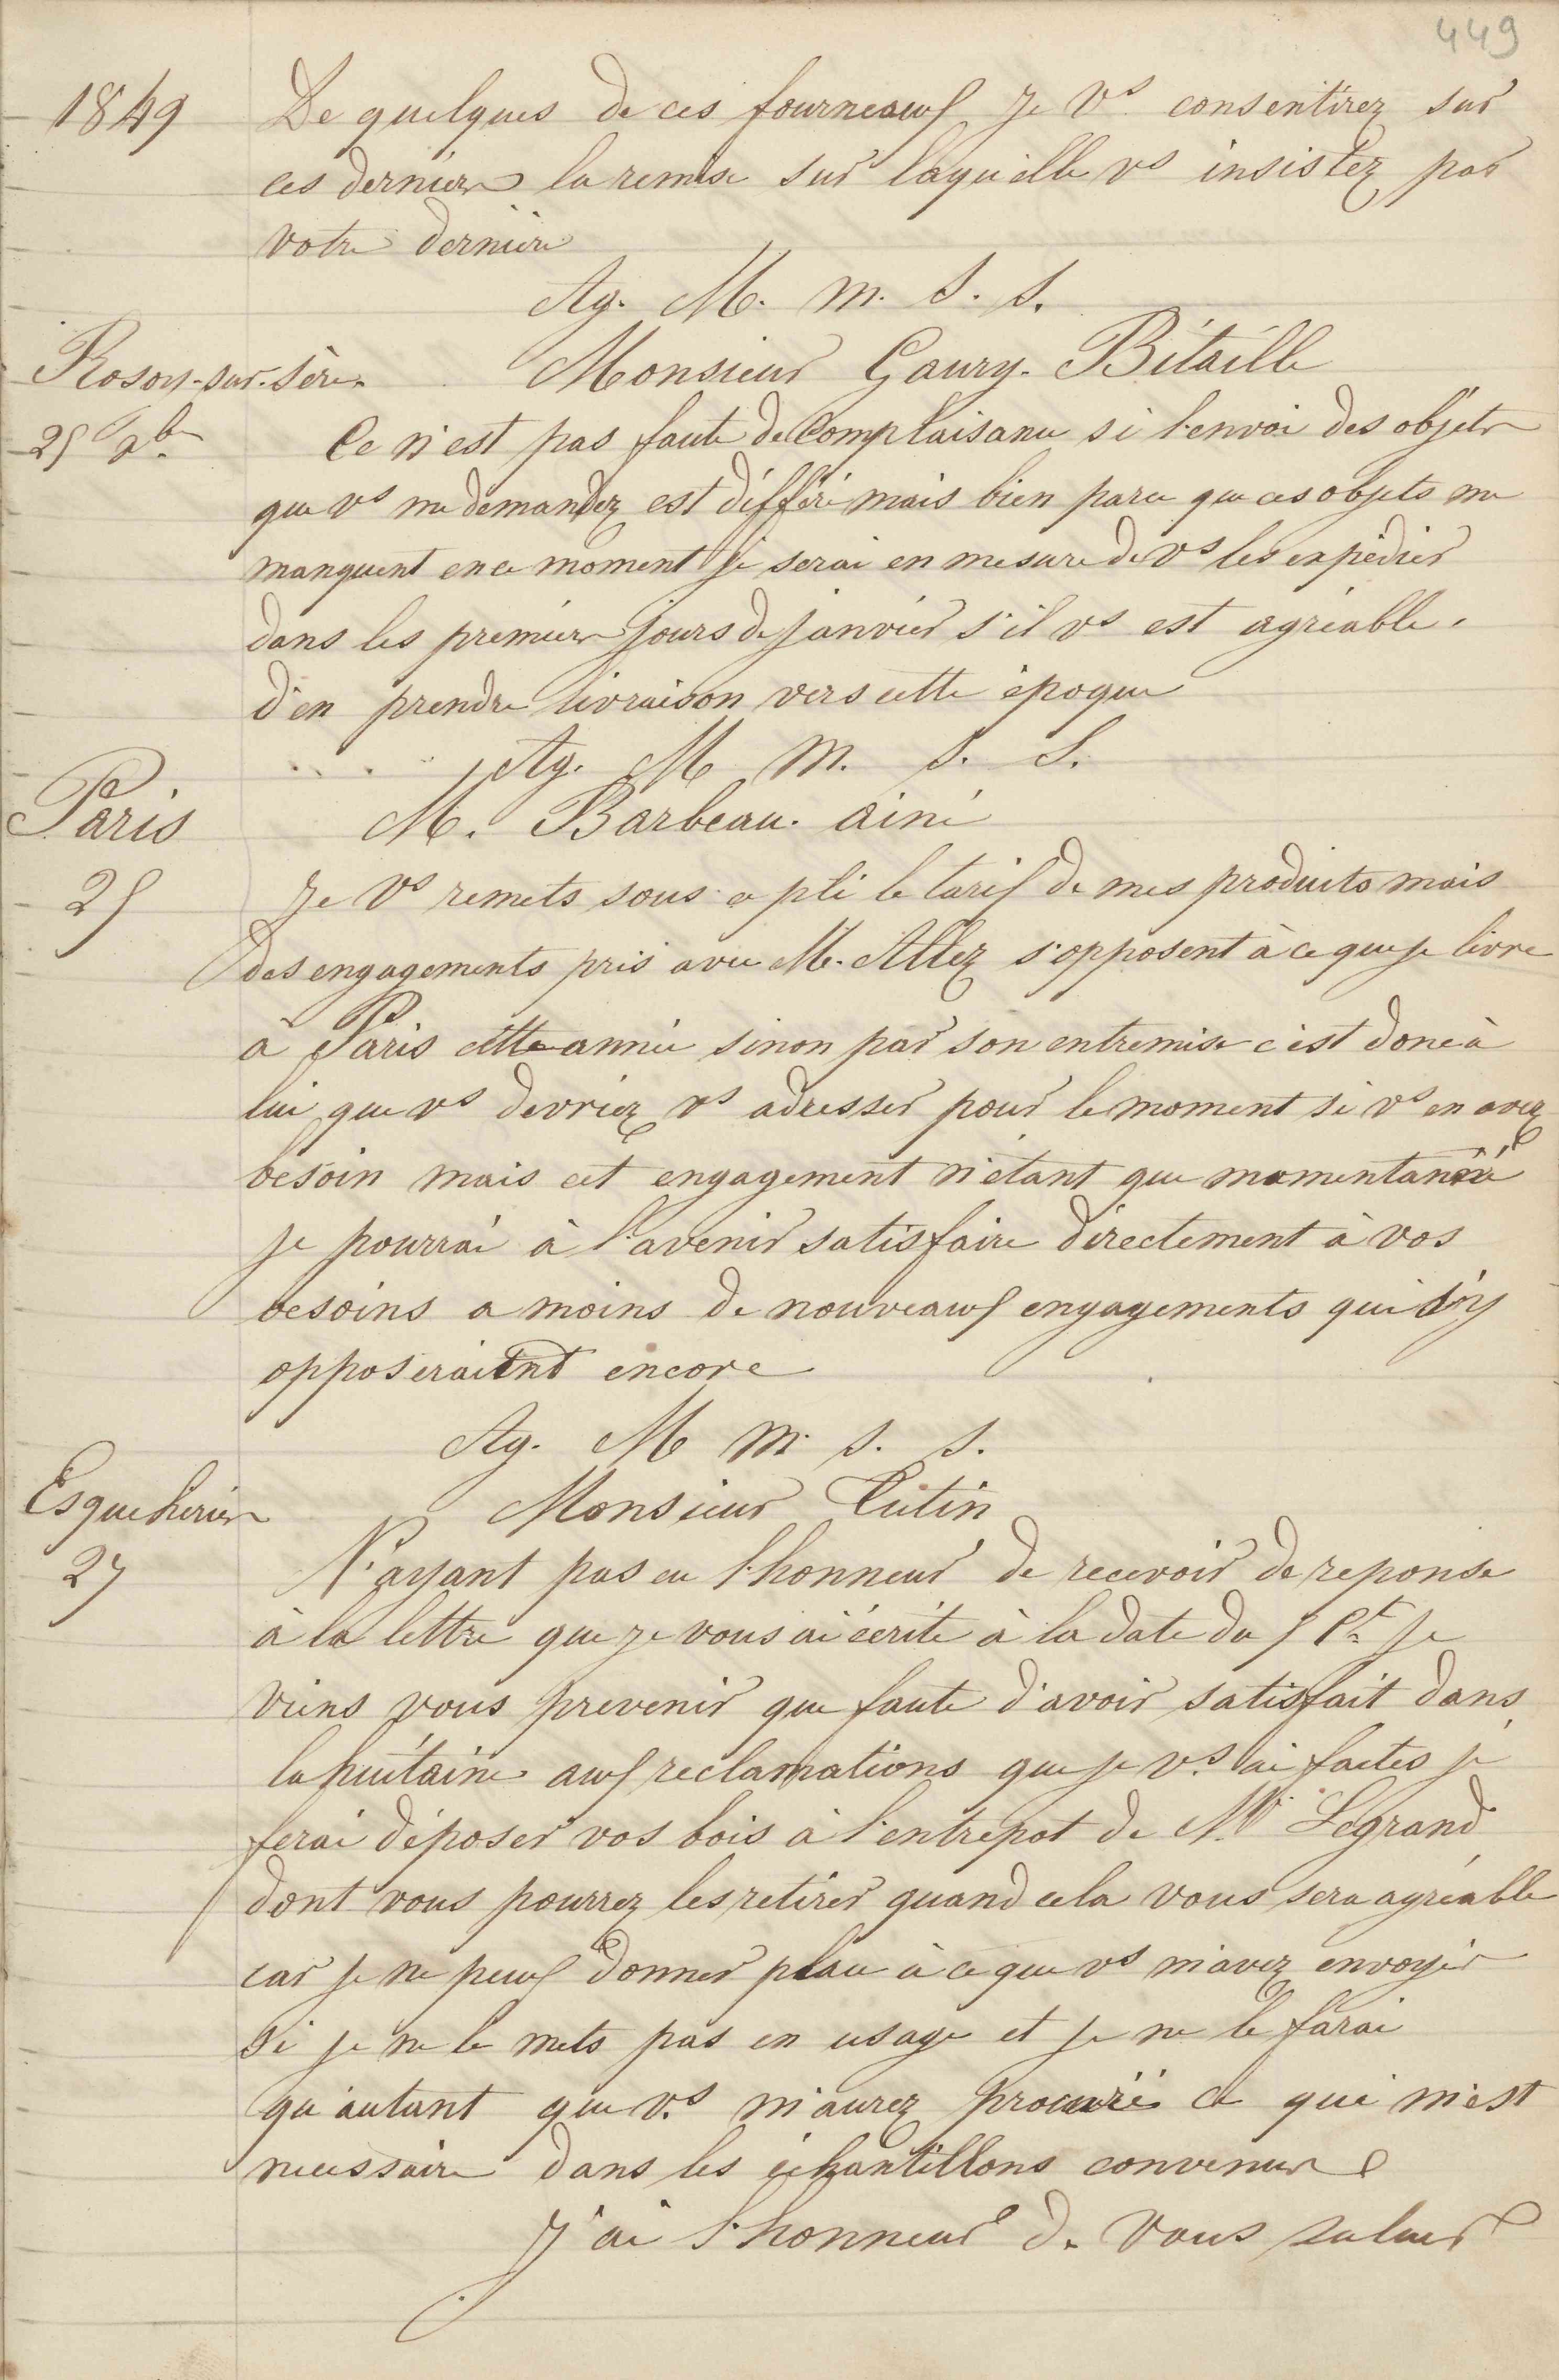 449
1849
De quelques de ces fourneaux Je vs consentirez sur
ces derniers la remise sur laquelle vs insistez par
votre dernière
Ag. M. m. S. S.
Rosoy-sur-Serre
Monsieur Gaury-Bétaille
25 Xbre
Ce n'est pas faute de Complaisance si l'envoi des objets
que vs me demandez est différé mais bien parce que ces objets me
manquent en ce moment je serai en mesure de vs les expédier
dans les premiers jours de janvier s'il vs est agréable
d'en prendre livraison vers cette époque
Ag. M m. S. S.
Paris
M. Barbeau ainé
25
Je vs remets sous ce pli le tarif de mes produits mais
des engagements pris avec M. Allez s'opposent à ce que je livre
à Paris cette année sinon par son entremise c'est donc à
lui que vs devriez vs adresser pour le moment si vs en avez
besoin mais cet engagement n'étant que momentané
je pourrai à l'avenir satisfaire directement à vos
besoins a moins de nouveaux engagements qui s'y
opposeraient encore
Ag. M m. S. S.
Esqueheries
Monsieur Cutin
27
N'ayant pas eu l'honneur de recevoir de reponse
à la lettre que je vous ai écrite à la date du 5 Ct je
viens vous prevenir que faute d'avoir satisfait dans
la huitaine aux reclamations que je vs ai faites je
ferai déposer vos bois à l'entrepot de Mr Legrand
dont vous pourrez les retirer quand cela vous sera agréable
car je ne peux donner place à ce que vs m'avez envoyér
si je ne le mets pas en usage et je ne le farai
qu'autant que vs m'aurez procuré ce qui m'est
necessaire dans les échantillons convenus
J'ai l'honneur de vous saluer